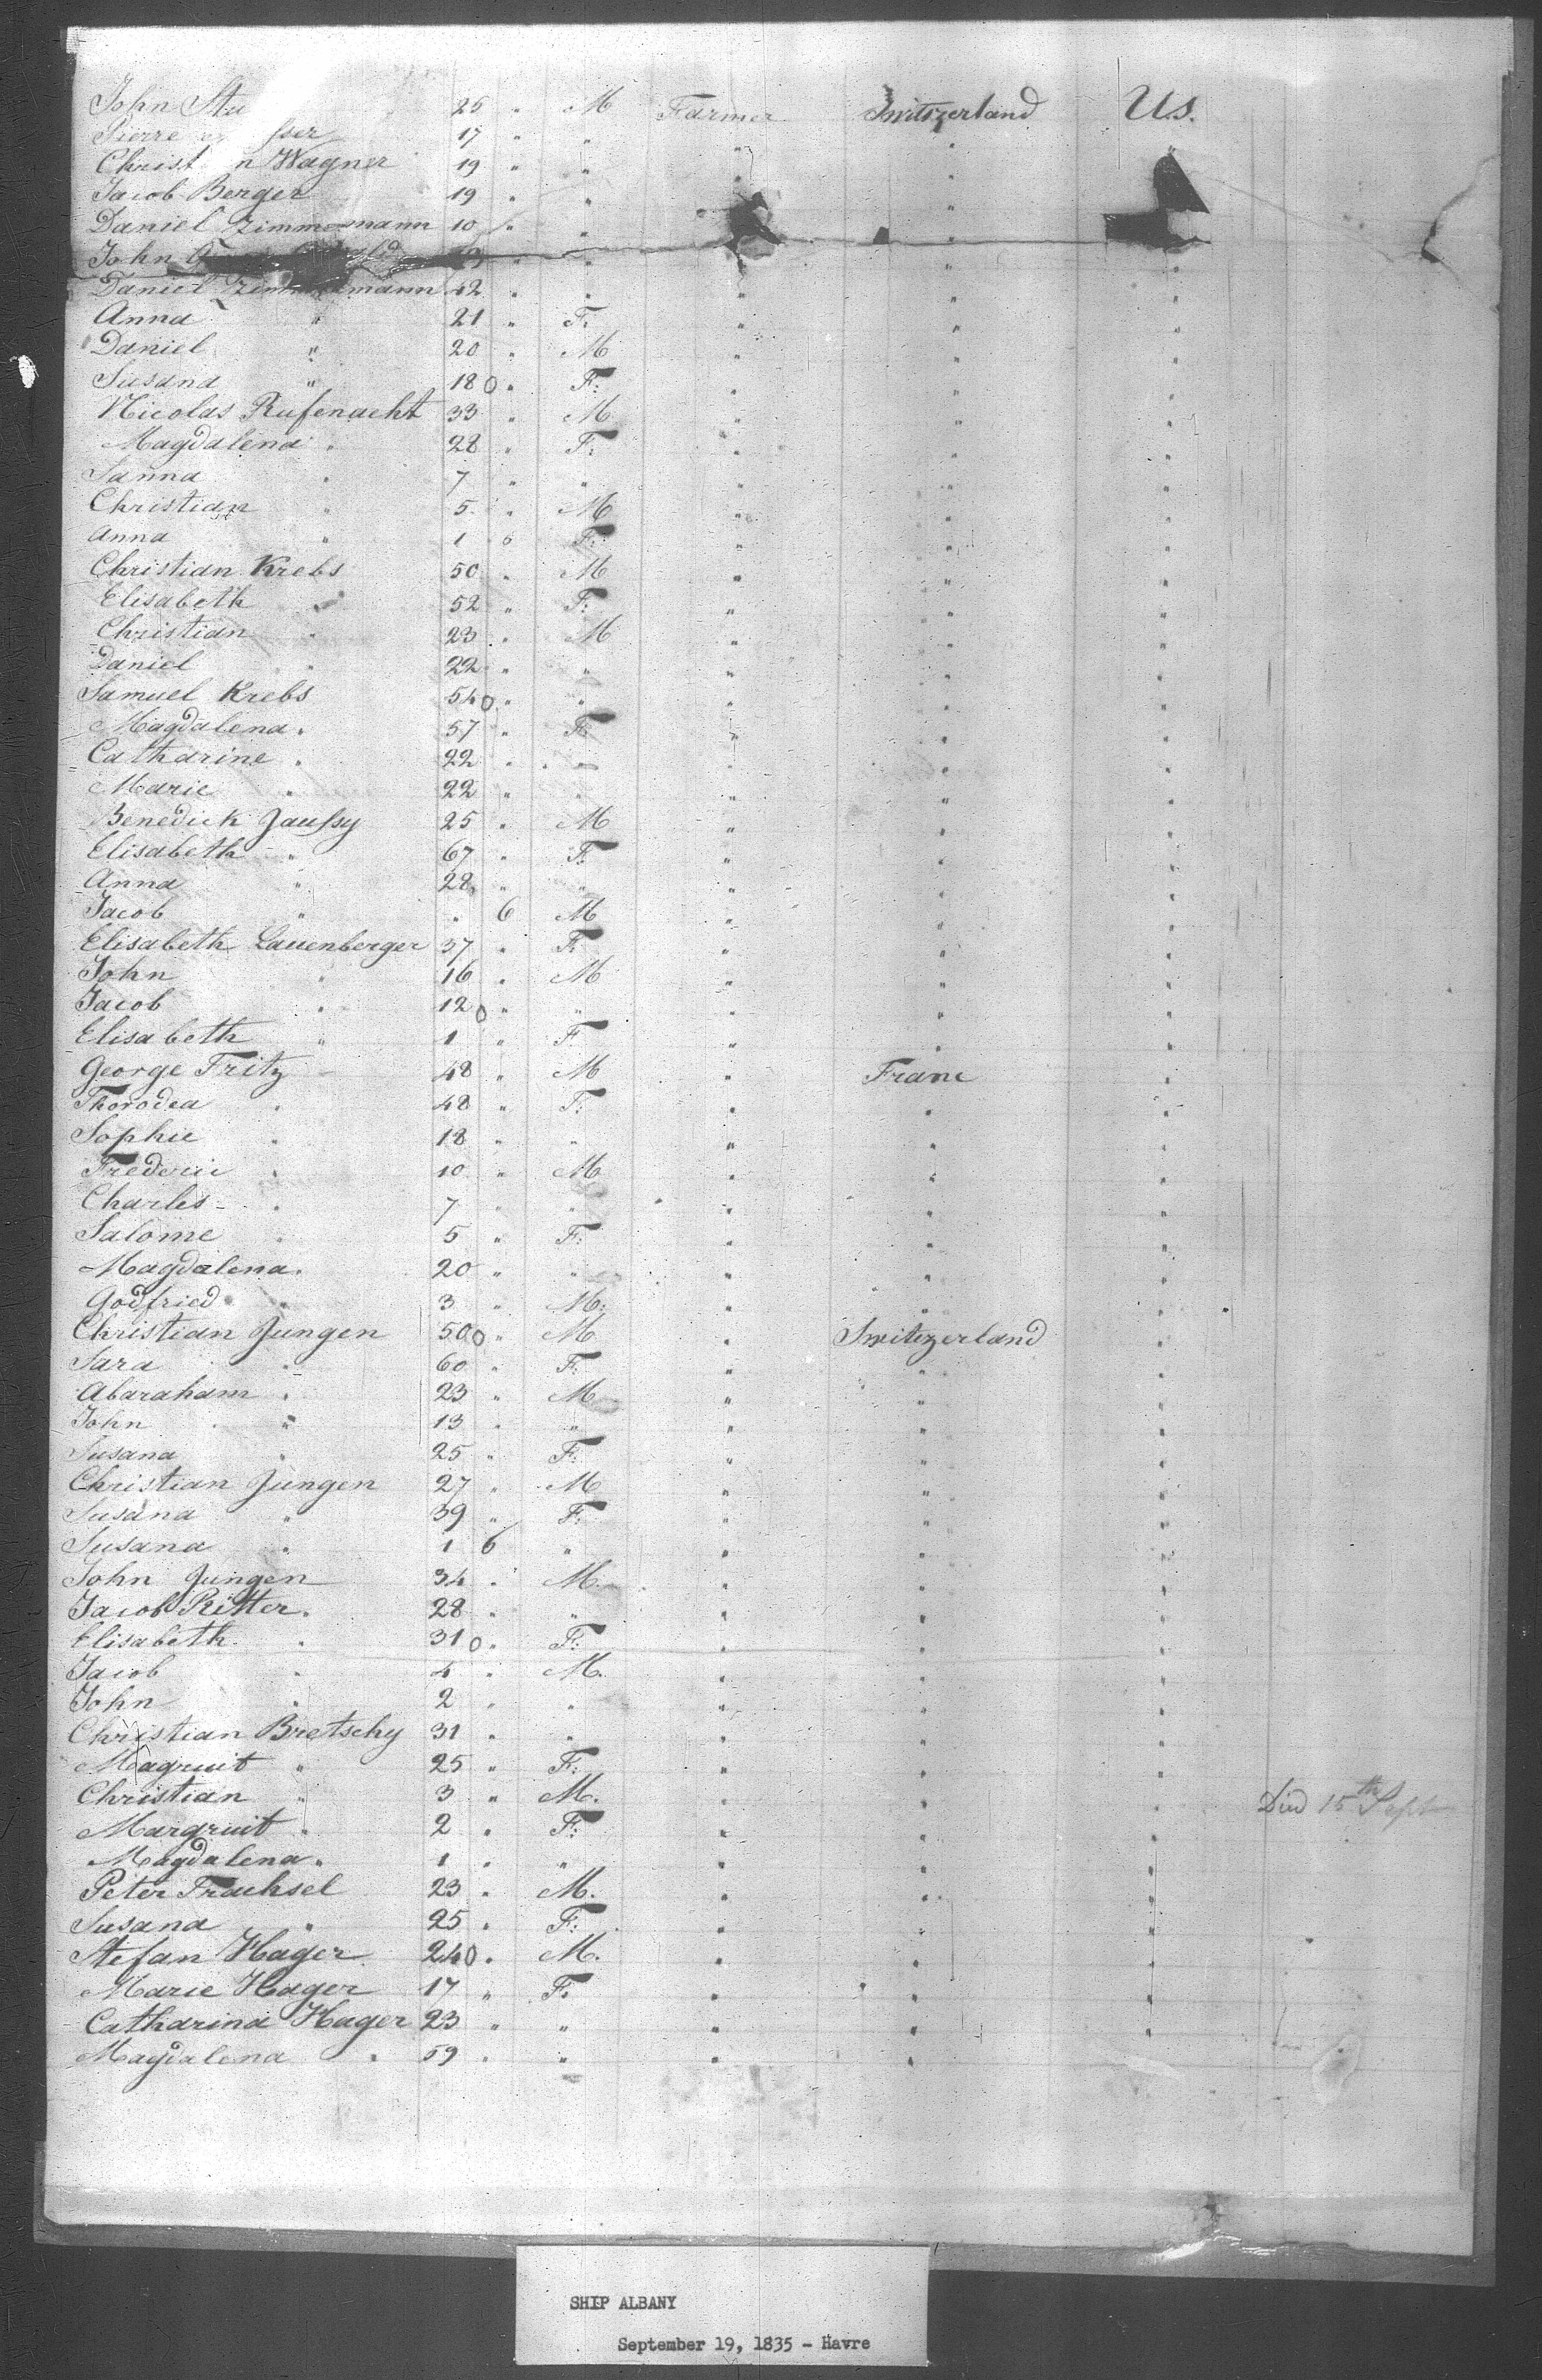 John Stu 25 " M Farmer Switzerland U.S.
Pierre sser 17 " " " "
Christ n Wagner 19 " " " "
Jacob Berger 19 " " " "
Daniel Zimmermann 10 " " " "
John " " " " "
Daniel Zimmermann 42 " " " " "
Anna " 21 " F. " " "
Daniel " 20 " M " " "
Susana " 18 0 " F: " " "
Nicolas Rufenacht 33 " M " " "
Magdalena " 28 " F: " " "
Sanna " 7 " " " " "
Christian " 5 " M " " "
Anna " 1 6 F: " " "
Christian Krebs 50 " M " " "
Elisabeth " 52 " F: " " "
Christian " 23 " M " " "
Daniel " 22 " " " " "
Samuel Krebs 54 0 " " " " "
Magdalena " 57 " F " " "
Catharine " 22 " " " " "
Marie " 22 " " " " "
Benedick Jaussy 25 " M " " "
Elisabeth " 67 " F: " " "
Anna " 28 " " " " "
Jacob " " 6 M " " "
Elisabeth Lauenberger 37 " F: " " "
John " 16 " M " " "
Jacob " 12 0 " " " " "
Elisabeth " 1 " F " " "
George Fritz 48 " M " Franc "
Thorodea " 48 " F: " " "
Sophie " 18 " " " " "
Frederic " 10 " M " " "
Charles " 7 " " " " "
Salome " 5 " F: " " "
Magdalena " 20 " " " " "
Godfried " 3 " M: " " "
Christian Jungen 50 0 " M " Switzerland "
Sara " 60 " F: " " "
Abaraham " 23 " M " " "
John " 13 " " " " "
Susana " 25 " F: " " "
Christian Jungen 27 " M " " "
Susana " 39 " F: " " "
Susana " 1 6 " " " "
John Jungen 34 " M. " " "
Jacob Ritter 28 " " " " "
Elisabeth " 31 0 " F: " " "
Jacob " 4 " M. " " "
John " 2 " " " " "
Christian Bretschy 31 " " " " "
Magruit " 25 " F: " " "
Christian " 3 " M. " " " Died 15th Sept
Margruit " 2 " F: " " "
Magdalena " 1 " " " " "
Peter Trachsel 23 " M. " " "
Susana " 25 " F: " " "
Stefan Hager 24 0 " M. " " "
Marie Hager 17 " F. " " "
Catharina Hager 23 " " " " "
Magdalena " 59 " " " "
SHIP ALBANY
September 19, 1835 - Havre